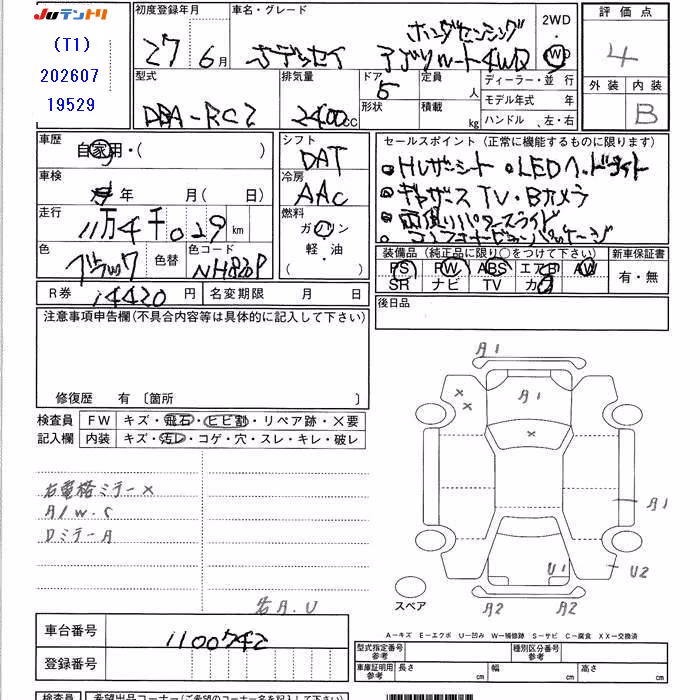 JUテントリ
(T1)
202607
19529
初度登録年月
27 6月
車名・グレード
ホンダセンシング
オデッセイ アブソルート4WD
2WD
・
4WD
評価点
4
外装 内装
B
型式
DBA-RC2
排気量
2400cc
ドア
5
形状
定員
人
積載
kg
ディーラー・並行
モデル年式 年
ハンドル 左・右
車歴
自家用・( )
車検
年 月( 日)
走行
11万4千029km
色
ブラック
色替
色コード
NH820P
シフト
DAT
冷房
AAC
燃料
ガソリン
軽・油
( )
セールスポイント(正常に機能するものに限ります)
・Hレザーシート ・LEDヘッドライト
・ギャザズTV・Bカメラ
・両側パワースライド
・コンフォートビューパッケージ
装備品(純正品に限り○をつけて下さい)
PS PW ABS エアB AW
SR ナビ TV カワ
新車保証書
有・無
R券 14420円
名変期限 月 日
後日品
注意事項申告欄(不具合内容等は具体的に記入して下さい)
修復歴 有〔箇所 〕
検査員
記入欄
FW キズ・飛石・ヒビ割・リペア跡・×要
内装 キズ・汚レ・コゲ・穴・スレ・キレ・破レ
右電格ミラー×
A/W・S
Dミラー A
右A.U
A1
A1
×
×
×
A1
U1
U2
A2 A2
スペア
A-キズ E-エクボ U-凹み W-補修跡 S-サビ C-腐食 XX-交換済
車台番号 1100742
登録番号
型式指定番号
参考
種別区分番号
参考
車庫証明用
参考
長さ cm 幅 cm 高さ cm
検査員
希望出品コーナー(ご希望のコーナー名を記入下さい)